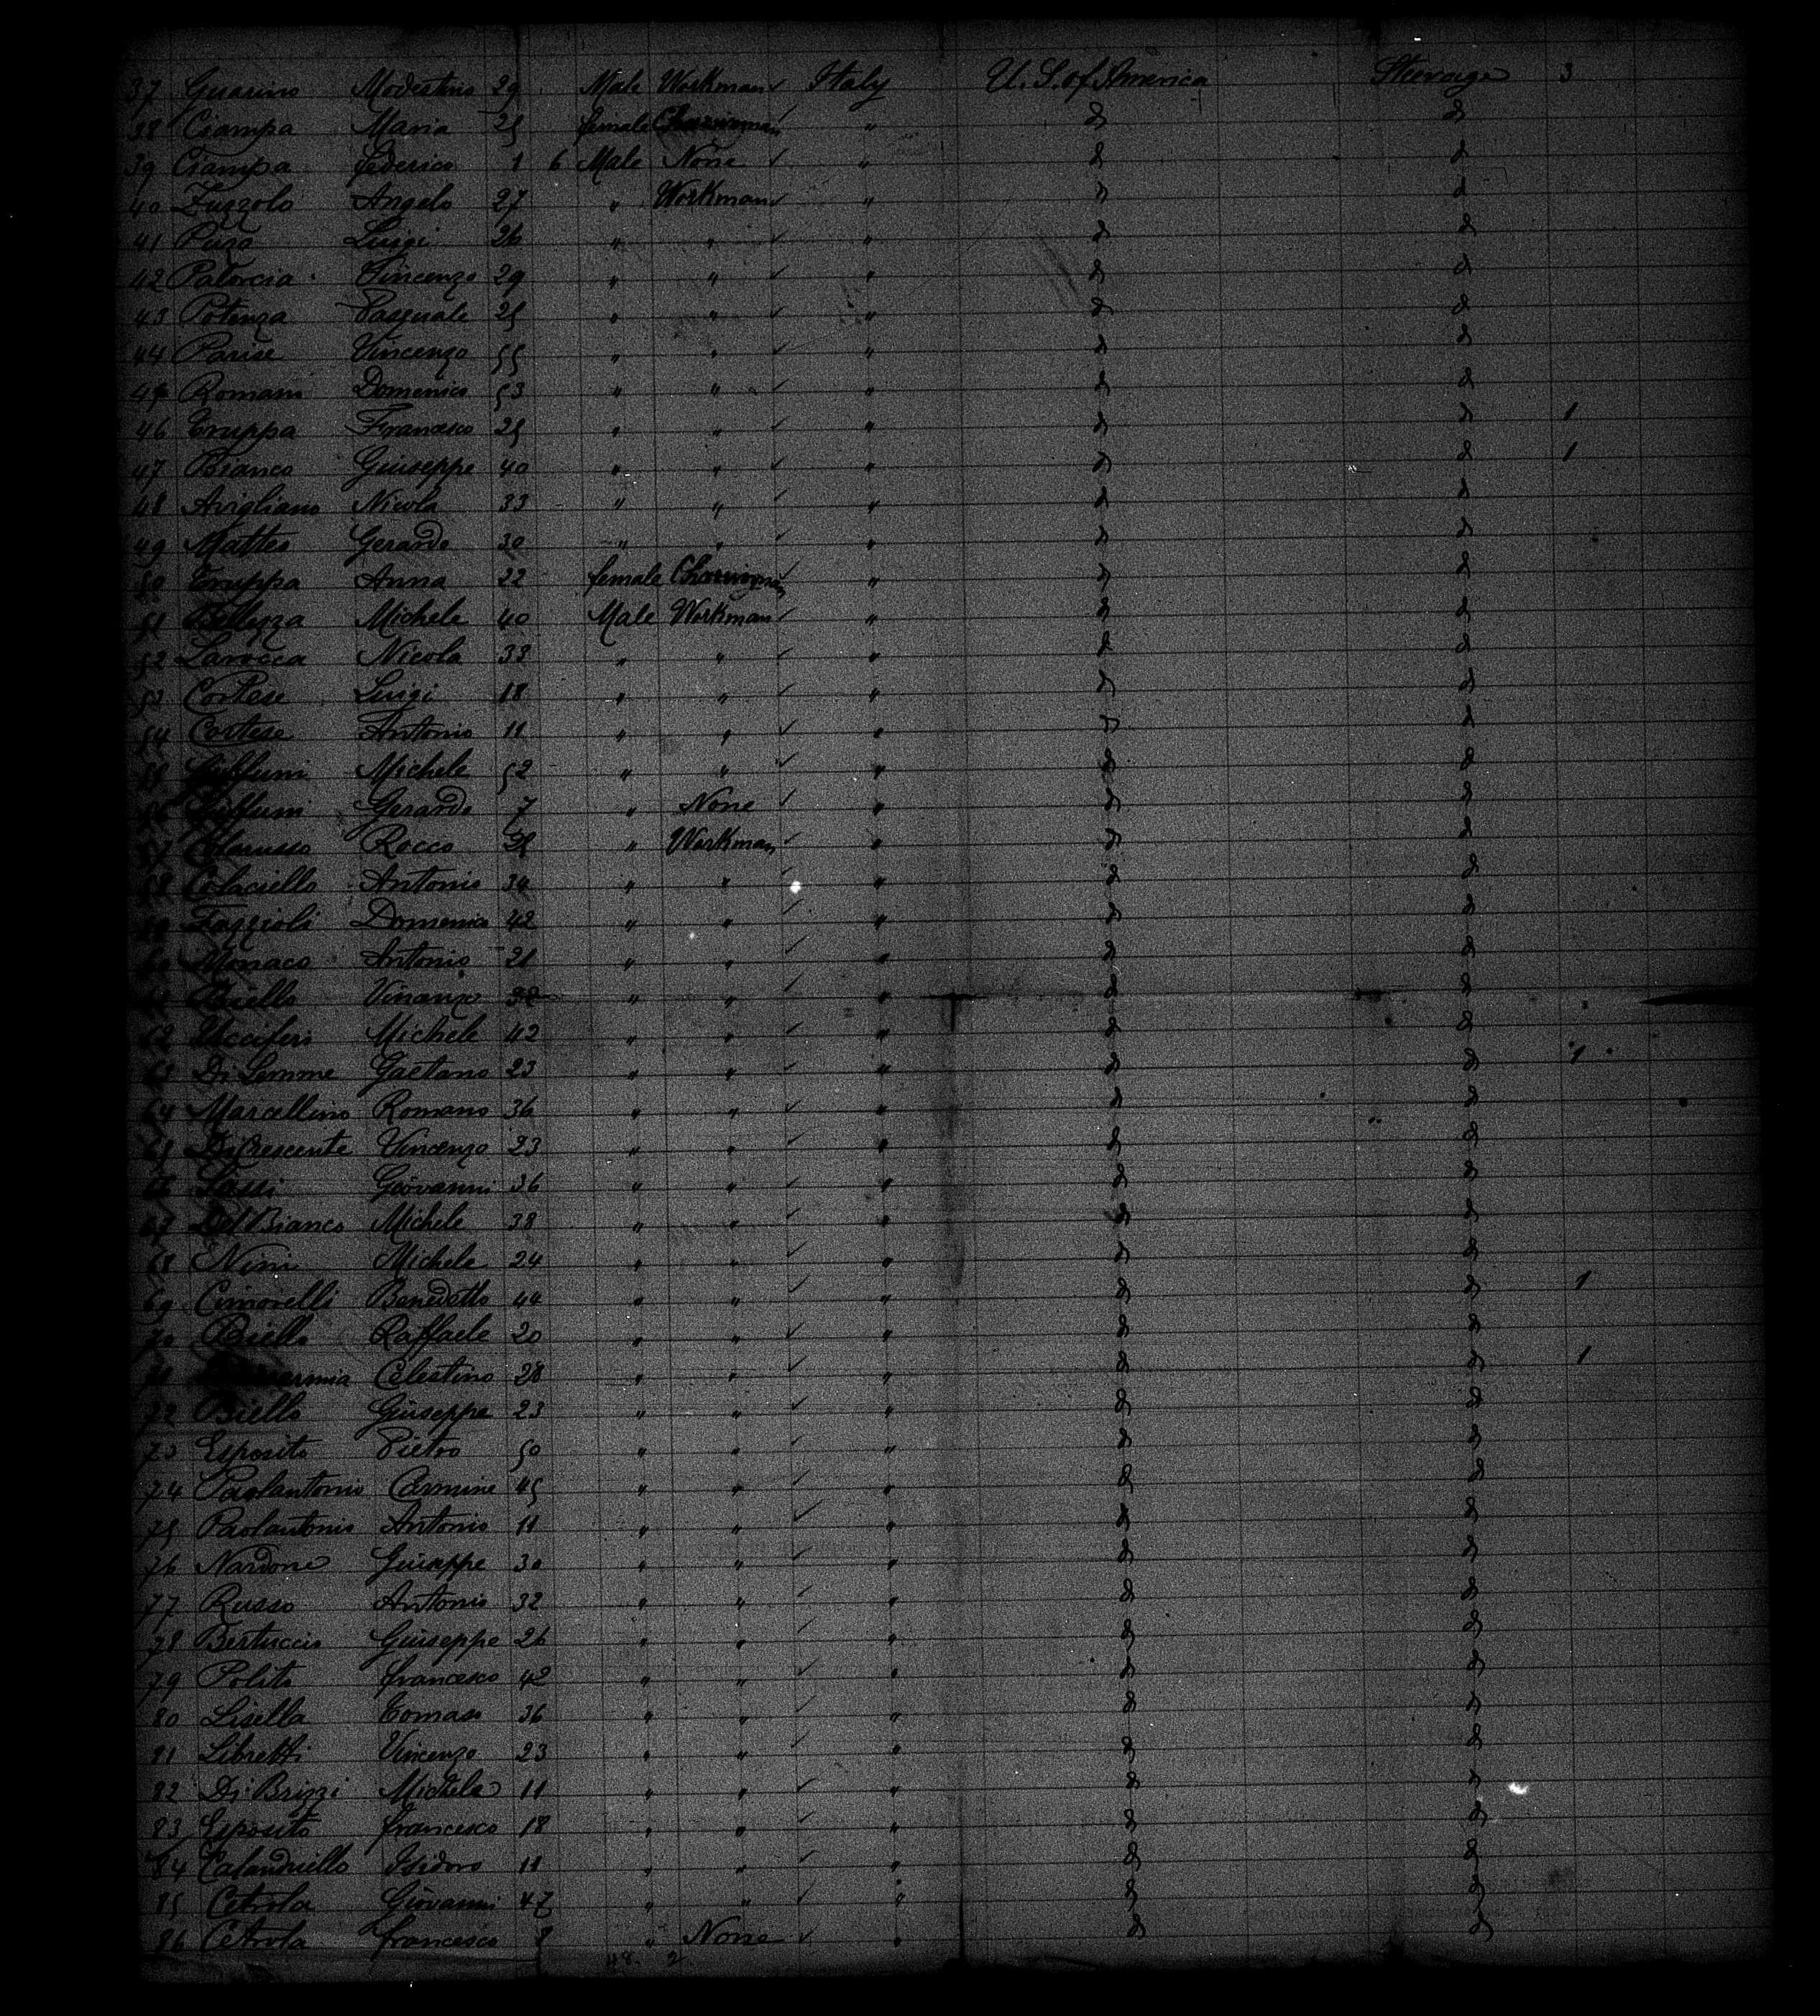 37 Guarino Modestino 29 Male Workman ✓ Italy U. S. of America Steerage 3
38 Ciampa Maria 25 female ✓ " d d
39 Ciampa federico 1 6 Male None ✓ " d d
40 Zuzzolo Angelo 27 " Workman ✓ " d d
41 Puzo Luigi 26 " " ✓ " d d
42 Patorcia Vincenzo 29 " " ✓ " d d
43 Potenza Pasquale 25 " " ✓ " d d
44 Parise Vincenzo 55 " " ✓ " d d
45 Romano Domenico 53 " " ✓ " d d
46 Truppa Francesco 25 " " ✓ " d d 1
47 Bianco Giuseppe 40 " " ✓ " d d 1
48 Avigliano Nicola 33 " " ✓ " d d
49 Matteo Gerardo 30 " " ✓ " d d
50 Truppa Anna 22 female ✓ " d d
51 Bellezza Michele 40 Male Workman ✓ " d d
52 Larocca Nicola 33 " " ✓ " d d
53 Cortese Luigi 18 " " ✓ " d d
54 Cortese Antonio 11 " " ✓ " d d
55 Michele 52 " " ✓ " d d
56 Gerardo 7 " None ✓ " d d
57 Colarusso Rocco " Workman ✓ " d d
58 Colaciello Antonio 34 " " ✓ " d d
59 Fazzioli Domenico 42 " " ✓ " d d
60 Monaco Antonio 21 " " ✓ " d d
61 Biello Vincenzo " " ✓ " d d
62 Ucciferi Michele 42 " " ✓ " d d
63 Di Lemme Gaetano 23 " " ✓ " d d 1
64 Marcellino Romano 36 " " ✓ " d d
65 DiCrescente Vincenzo 23 " " ✓ " d d
66 Sassi Giovanni 36 " " ✓ " d d
67 Del Bianco Michele 38 " " ✓ " d d
68 Nini Michele 24 " " ✓ " d d
69 Cimorelli Benedetto 44 " " ✓ " d d 1
70 Biello Raffaele 20 " " ✓ " d d
71 Celestino 28 " " ✓ " d d 1
72 Biello Giuseppe 23 " " ✓ " d d
73 Esposito Pietro 50 " " ✓ " d d
74 Paolantonio Carmine 45 " " ✓ " d d
75 Paolantonio Antonio 11 " " ✓ " d d
76 Nardone Giuseppe 30 " " ✓ " d d
77 Russo Antonio 32 " " ✓ " d d
78 Bertuccio Giuseppe 26 " " ✓ " d d
79 Polito francesco 42 " " ✓ " d d
80 Lisella Tomaso 36 " " ✓ " d d
81 Libretti Vincenzo 23 " " ✓ " d d
82 Di Brizzi Michele 11 " " ✓ " d d
83 Esposito francesco 18 " " ✓ " d d
84 Calandriello Isidoro 11 " " ✓ " d d
85 Cetrola Giovanni 47 " " ✓ " d d
86 Cetrola francesco 8 " None ✓ " d d
48. 2